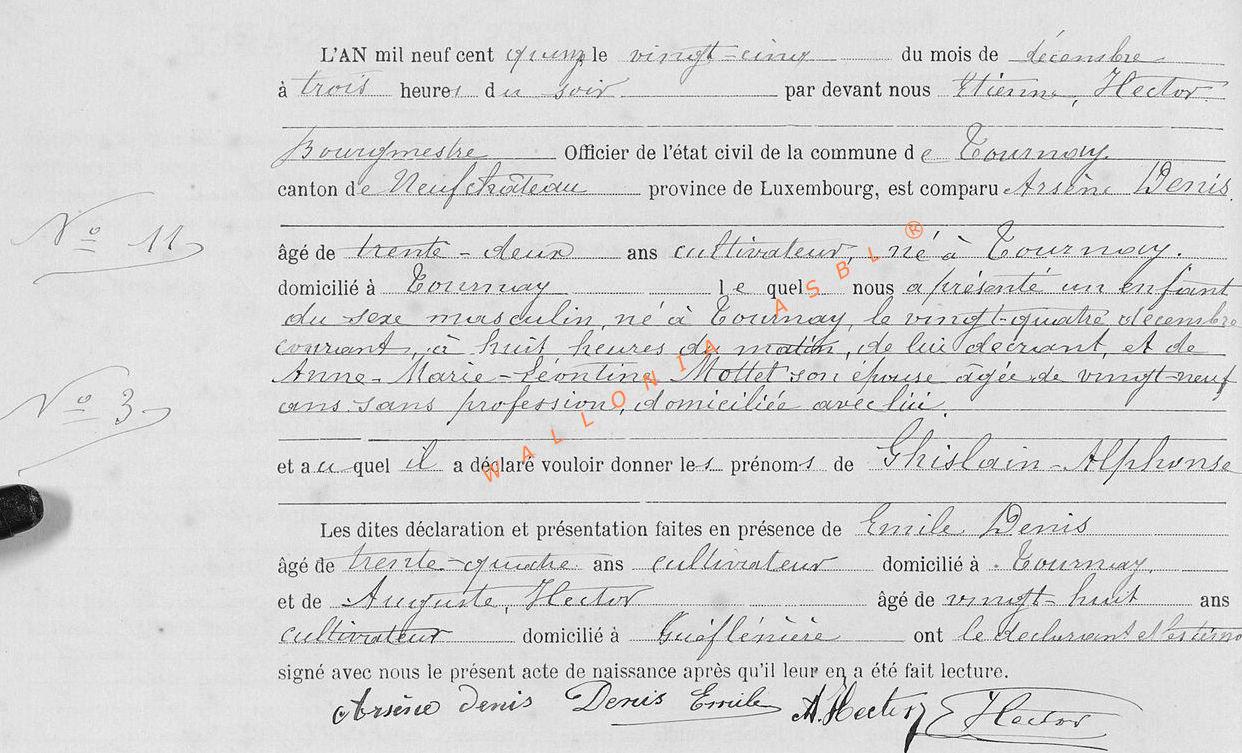 L'AN mil neuf cent quinze le vingt-cinq du mois de décembre
à trois heures du soir par devant nous Etienne, Hector
Bourgmestre Officier de l'état civil de la commune de Tournay
canton de Neufchâteau province de Luxembourg, est comparu Arsène Denis
N° 11
âgé de trente-deux ans cultivateur, né à Tournay.
domicilié à Tournay lequel nous a présenté un enfant
du sexe masculin, né à Tournay, le vingt-quatre décembre
courant, à huit heures du matin, de lui déclarant, et de
Anne-Marie-Léontine Mottet son épouse âgée de vingt-neuf
N° 3
ans sans profession, domiciliée avec lui.
et auquel il a déclaré vouloir donner les prénoms de Ghislain-Alphonse
Les dites déclaration et présentation faites en présence de Emile Denis
âgé de trente-quatre ans cultivateur domicilié à Tournay.
et de Auguste, Hector âgé de vingt-huit ans
cultivateur domicilié à ont le déclarant et les témo
signé avec nous le présent acte de naissance après qu'il leur en a été fait lecture.
Arsène Denis Denis Emile A. Hector E Hector
WALLONIA ASBL ®